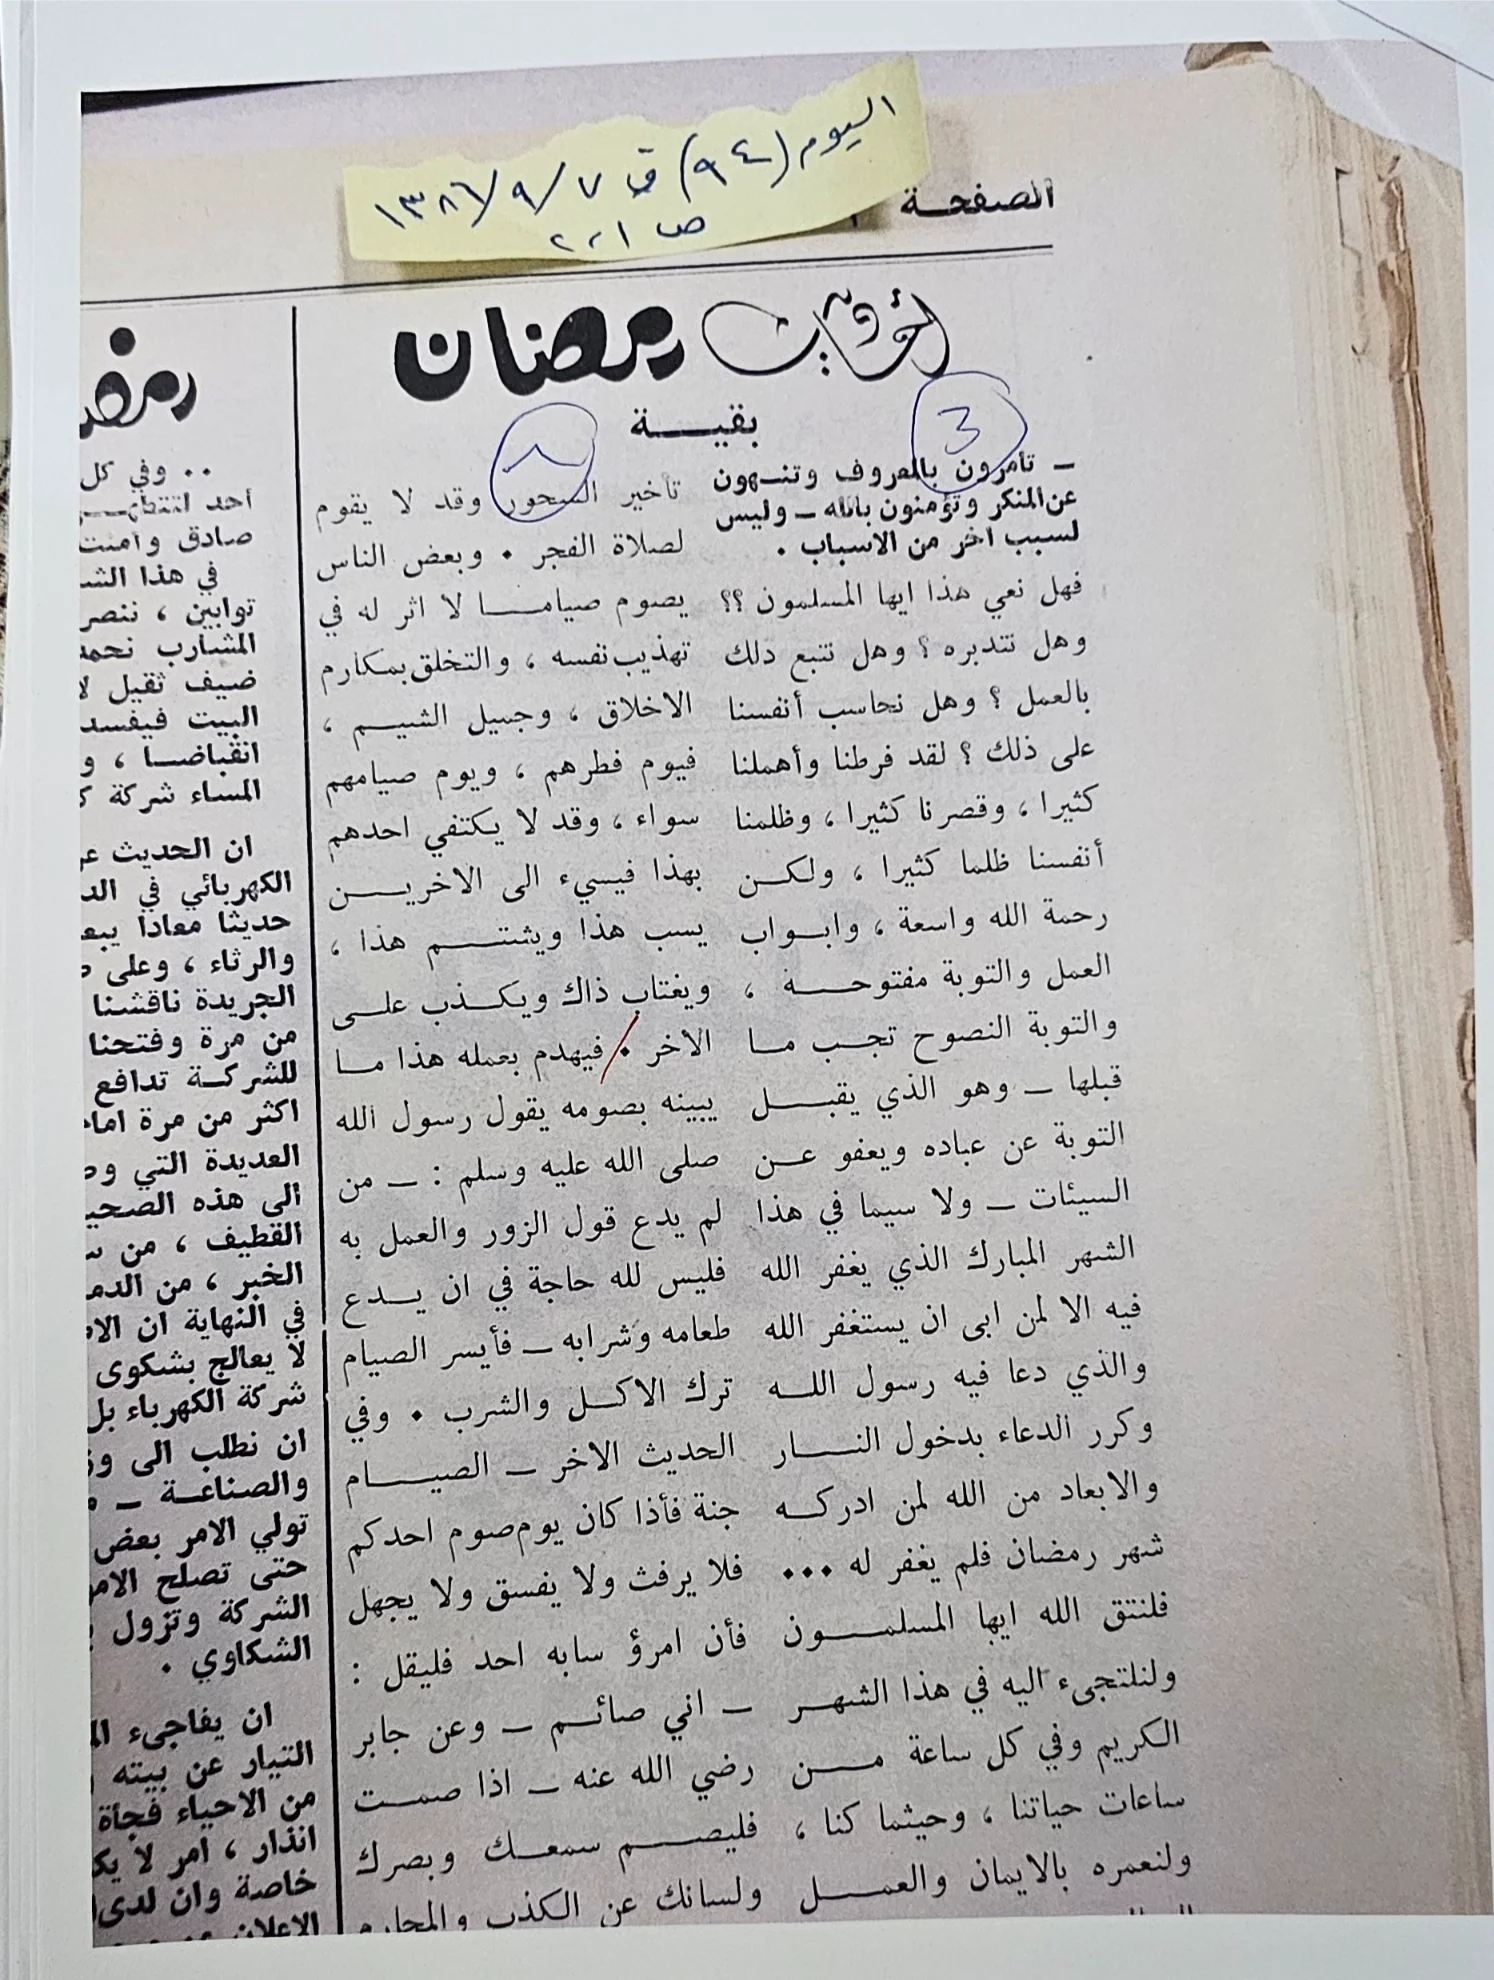 اليوم (٩٤) في ١٣٨٦/٩/٧
ص ٢،١
الصفحة
رمضان
بقية
3
٨
ـ تأمرون بالمعروف وتنهون
عن المنكر وتؤمنون بالله ـ وليس
لسبب آخر من الاسباب .
فهل نعي هذا ايها المسلمون ؟؟
وهل نتدبره ؟ وهل نتبع ذلك
بالعمل ؟ وهل نحاسب أنفسنا
على ذلك ؟ لقد فرطنا وأهملنا
كثيرا ، وقصرنا كثيرا ، وظلمنا
أنفسنا ظلما كثيرا ، ولكن
رحمة الله واسعة ، وابواب
العمل والتوبة مفتوحة ،
والتوبة النصوح تجب ما
قبلها ـ وهو الذي يقبل
التوبة عن عباده ويعفو عن
السيئات ـ ولا سيما في هذا
الشهر المبارك الذي يغفر الله
فيه الا لمن ابى ان يستغفر الله
والذي دعا فيه رسول الله
وكرر الدعاء بدخول النار
والابعاد من الله لمن ادركه
شهر رمضان فلم يغفر له ...
فلنتق الله ايها المسلمون
ولنلتجىء اليه في هذا الشهر
الكريم وفي كل ساعة من
ساعات حياتنا ، وحيثما كنا ،
ولنعمره بالايمان والعمل
تأخير السحور وقد لا يقوم
لصلاة الفجر . وبعض الناس
يصوم صياما لا اثر له في
تهذيب نفسه ، والتخلق بمكارم
الاخلاق ، وجميل الشيم ،
فيوم فطرهم ، ويوم صيامهم
سواء ، وقد لا يكتفي احدهم
بهذا فيسيء الى الاخرين
يسب هذا ويشتم هذا ،
ويغتاب ذاك ويكذب على
الاخر . فيهدم بعمله هذا ما
يبينه بصومه يقول رسول الله
صلى الله عليه وسلم : ـ من
لم يدع قول الزور والعمل به
فليس لله حاجة في ان يدع
طعامه وشرابه ـ فأيسر الصيام
ترك الاكل والشرب . وفي
الحديث الاخر ـ الصيام
جنة فأذا كان يوم صوم احدكم
فلا يرفث ولا يفسق ولا يجهل
فأن امرؤ سابه احد فليقل :
ـ اني صائم ـ وعن جابر
رضي الله عنه ـ اذا صمت
فليصم سمعك وبصرك
ولسانك عن الكذب والمحارم
.. وفي كل
أحد
صادق وآمنت
في هذا
توابين ،
المشارب
ضيف ثقيل
البيت
انقباضا ، و
المساء شركة
ان الحديث
الكهربائي في
حديثا معادا
والرثاء ، وعلى
الجريدة ناقشنا
من مرة وفتحنا
للشركة تدافع
اكثر من مرة
العديدة التي
الى هذه
القطيف ، من
الخبر ، من
في النهاية ان
لا يعالج بشكوى
شركة الكهرباء بل
ان نطلب الى
والصناعة ـ
تولي الامر بعض
حتى تصلح
الشركة وتزول
الشكاوي .
ان يفاجىء
التيار عن بيته
من الاحياء فجأة
انذار ، امر لا
خاصة وان لدى
الاعلان